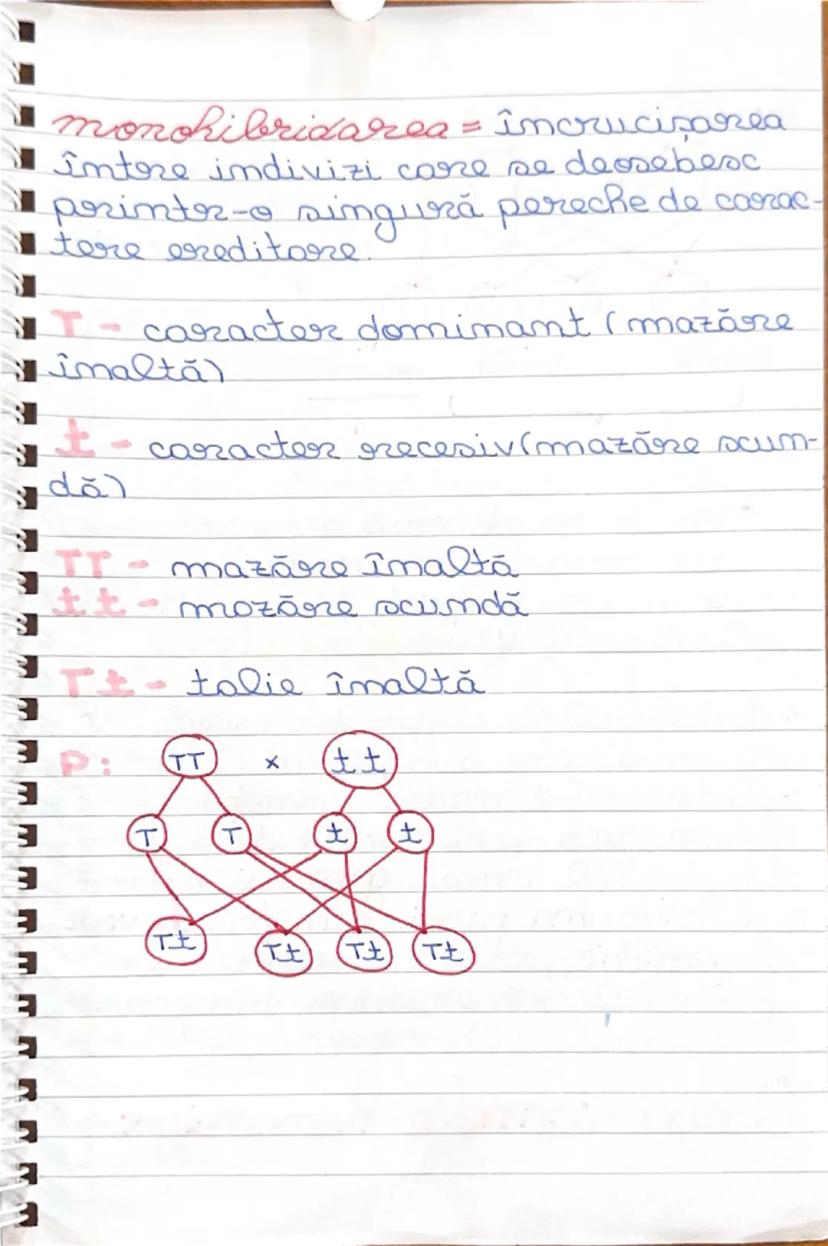 monohibridarea = încrucișarea
între indivizi care se deosebesc
printr-o singură pereche de carac-
tere ereditare.
T - caracter dominant (mazăre
înaltă)
t - caracter recesiv (mazăre scun-
dă)
TT - mazăre înaltă
tt - mazăre scundă
Tt - talie înaltă
P: TT x tt
T T t t
Tt Tt Tt Tt